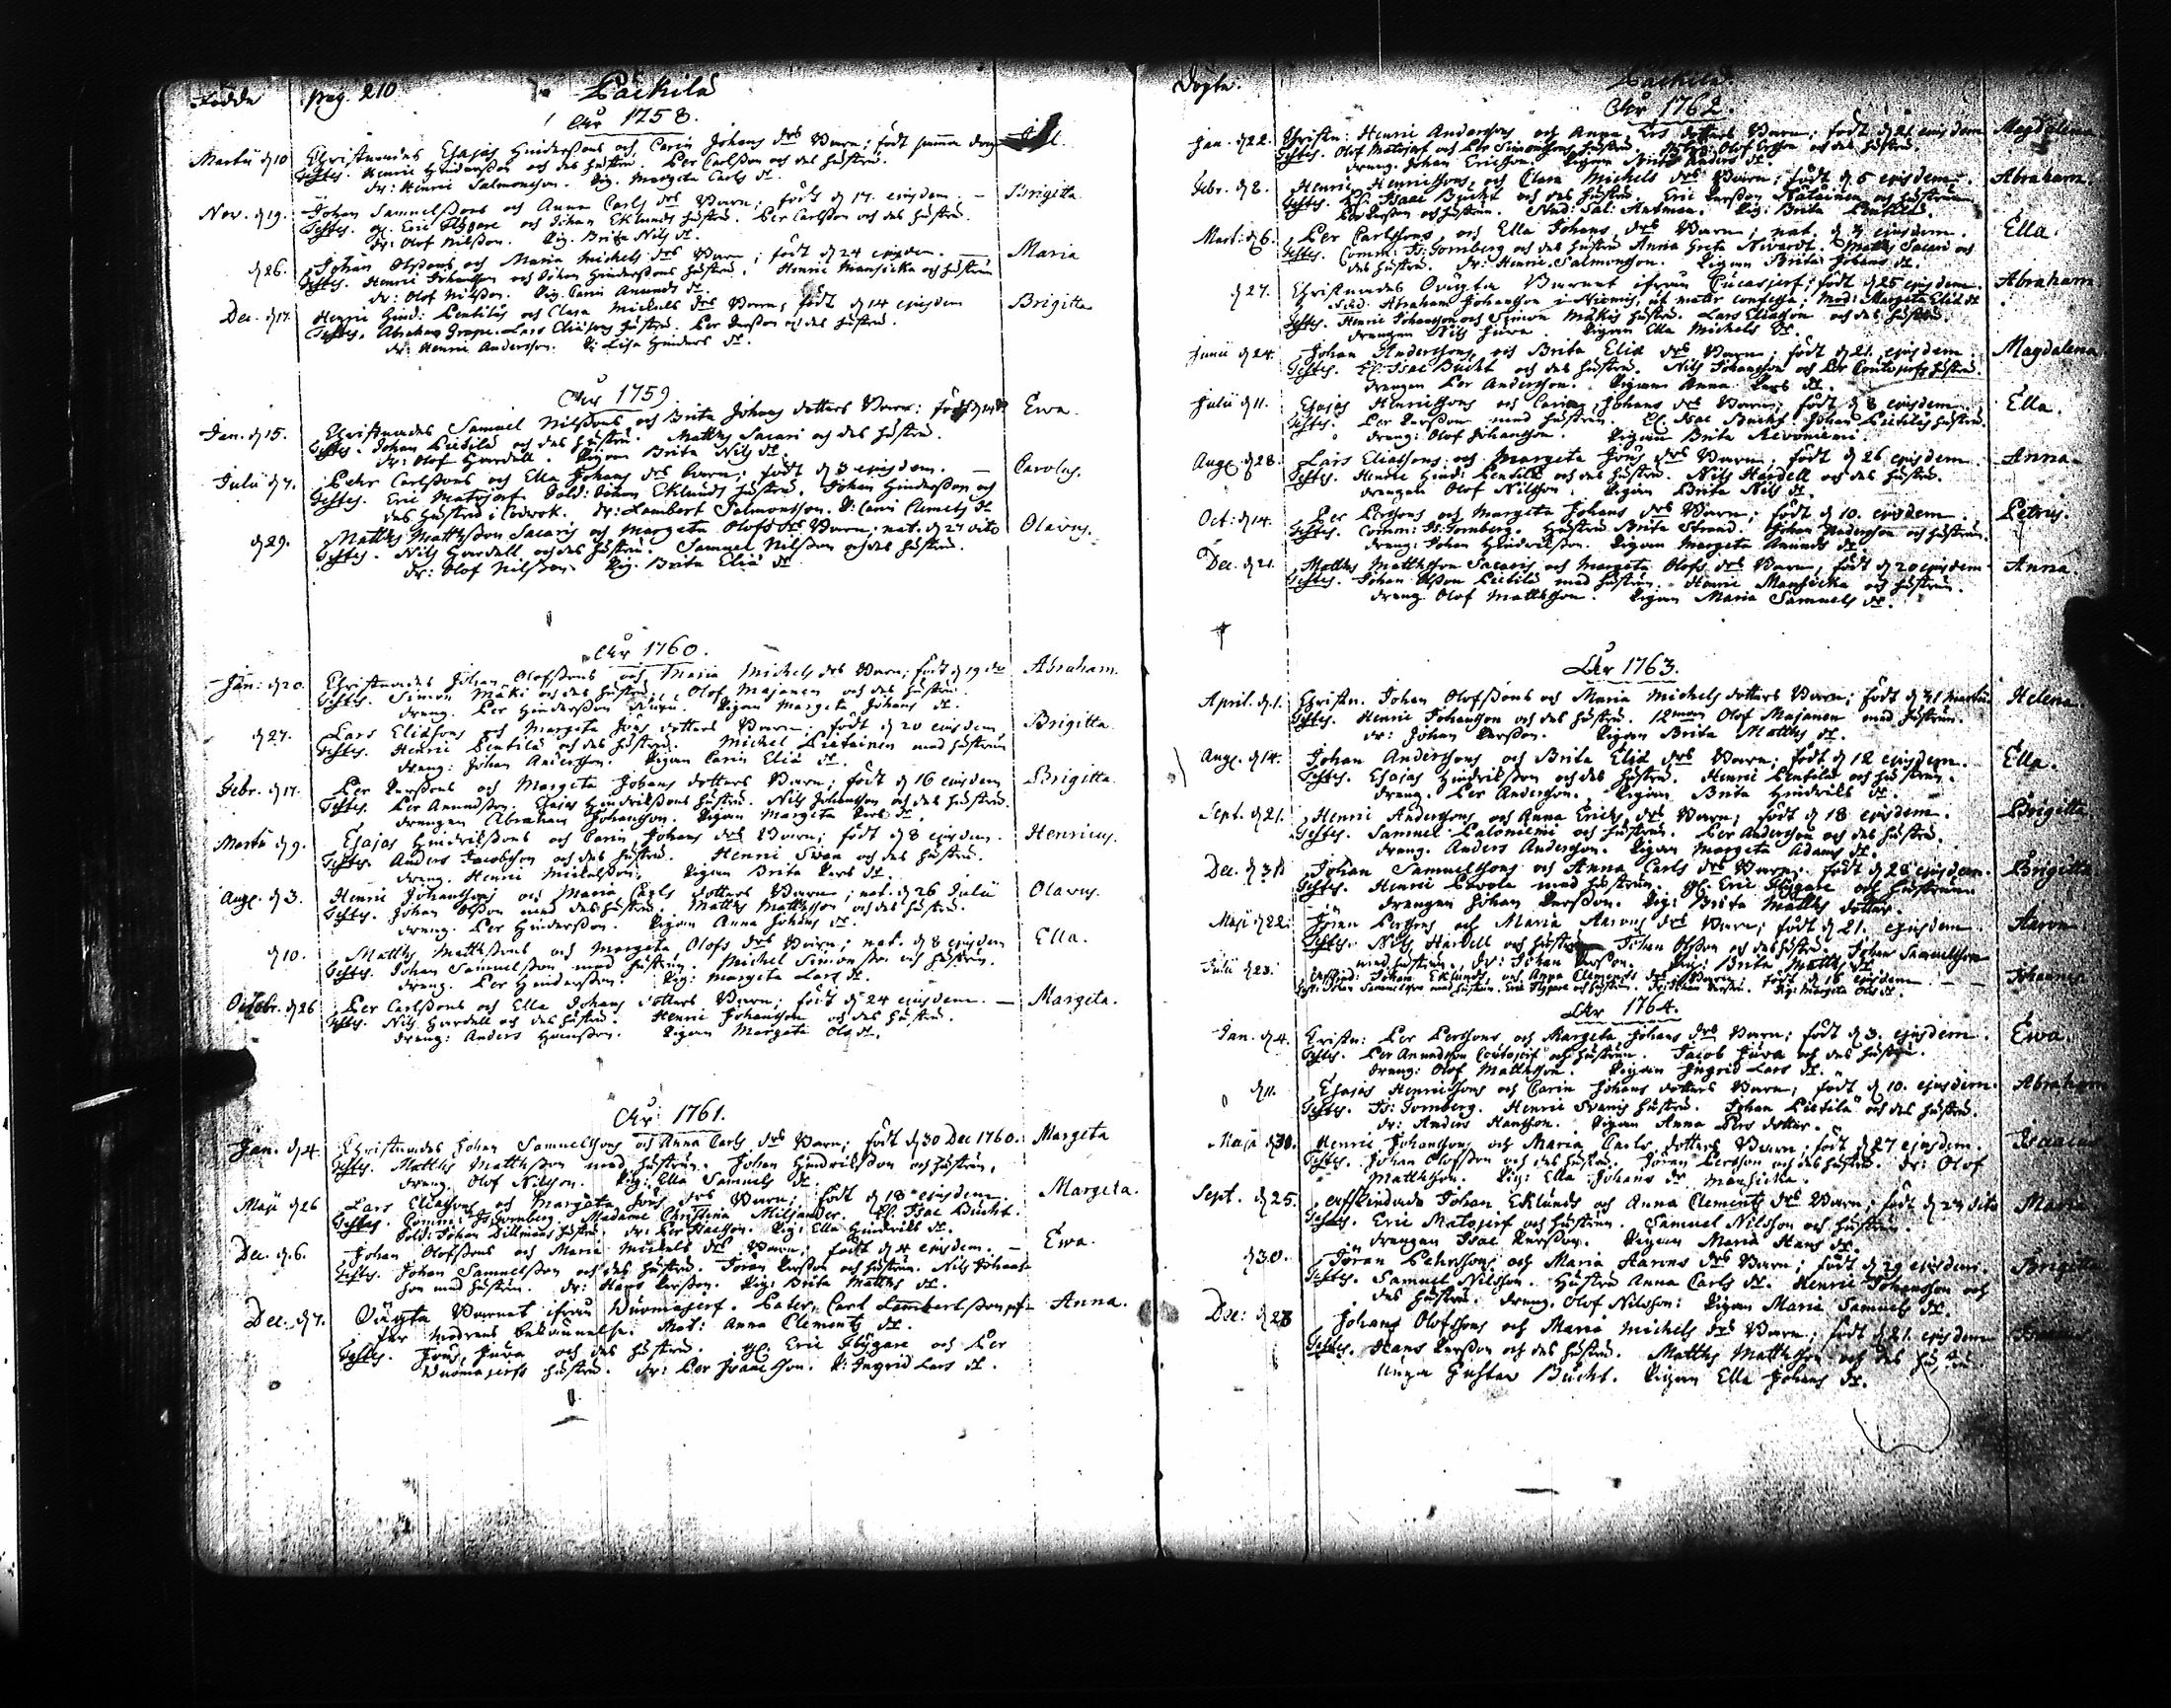 Födde pag. 210 Päckilä
Åhr 1758.
Martii d 10 Christnades Esajas Hinderssons och Carin Johans drs Barn; födt samma dag
Testes. Henric Hindersson och des hustru. Per Carlsson och des hustru.
dr: Henric Salmonsson. Pig. Margeta Carls dr.
Nov. d 19. Johan Samuelssons och Anna Carls drs Barn; födt d 17. ejusdem. — Brigitta.
Testes. Eric Flygare och Johan Eklunds hustru. Per Carlsson och des hustru.
dr: Olof Nilsson. Pig. Brita Nils dr.
d 26. Johan Olssons och Maria Michels drs Barn; födt d 24 ejusdem. — Maria
Testes. Henric Johansson och Johan Hinderssons hustru. Henric Mansicka och hustrun
dr: Olof Nilsson. Pig. Carin Anunds dr.
Dec. d 17. Henric Hind: Pentiläs och Clara Michels drs Barn; födt d 14 ejusdem Brigitta
Testes. Abraham Grape. Lars Eliæsons hustru. Per Persson och des hustru.
dr: Henric Andersson. P: Lisa Hinders dr.
Åhr 1759.
Jan. d 15. Christnades Samuel Nilssons och Brita Johans dotters Barn: födt d 14 Ewa.
Testes. Johan Pietilä och des hustru. Matths Sacari och des hustru.
dr: Olof Hardell. Pigan Brita Nils dr.
Julii d 7. Pehr Carlssons och Ella Johans drs Barn; födt d 3 ejusdem. — Carolus.
Testes. Eric Matojerf. Sold: Johan Eklunds hustru. Johan Hindersson och
des hustru i Torwok. dr: Lambert Salmonsson. P: Carin Clemets dr
d 29. Matths Matthsson Sacaris och Margeta Olofs drs Barn; nat. d 27 dito Olavus.
Testes. Nils Hardell och des hustru. Samuel Nilsson och des hustru.
dr: Olof Nilsson. Pig. Brita Eliæ dr
Åhr 1760.
Jan: d 20. Christnades Johan Olofssons och Maria Michels drs Barn; födt d 19 do Abraham.
Testes. Simon Mäki och des hustru. Olof Majanen och des hustru.
dreng. Per Hindersson. Pigan Margeta Johans dr.
d 27. Lars Eliæsons och Margeta Jöns dotters Barn; födt d 20 ejusdem Brigitta.
Testes. Henric Pentilä och des hustru. Michel Pietainen med hustrun
dreng: Johan Andersson. Pigan Carin Eliæ dr.
Febr. d 17. Per Perssons och Margeta Johans dotters Barn; födt d 16 ejusdem Brigitta.
Testes. Per Anundson. Esaias Hindrikssons hustru. Nils Johansson och des hustru.
drengen Abraham Johansson. Pigan Margeta Pers dr.
Martii d 9. Esajas Hindrikssons och Carin Johans drs Barn; födt d 8 ejusdem. Henricus.
Testes. Anders Jacobsson och des hustru. Henric Swan och des hustru.
dreng. Henric Michelsson. Pigan Brita Pers dr.
Aug. d 3. Henric Johanssons och Maria Carls dotters Barn; nat. d 26 Julii Olavus.
Testes. Johan Olsson med des hustru. Matths Matthsson och des hustru.
dreng. Per Hindersson. Pigan Anna Johans dr.
d 10. Matths Matthssons och Margeta Olofs drs Barn; nat. d 8 ejusdem Ella.
Testes. Johan Samuelsson med hustrun. Michel Simonsson och hustrun.
dreng. Per Hindersson. Pig: Margeta Lars dr.
Octobr. d 26 Per Carlssons och Ella Johans dotters Barn; födt d 24 ejusdem. — Margeta.
Testes. Nils Hardell och des hustru. Henric Johansson och des hustru.
dreng: Anders Hansson. Pigan Margeta Ols dr.
Åhr 1761.
Jan. d 4. Christnades Johan Samuelssons och Anna Carls drs Barn; födt d 30 Dec 1760. Margeta
Testes. Matths Matthsson med hustrun. Johan Hindriksson och hustrun.
dreng. Olof Nilsson. Pig: Ella Samuels dr.
Maji d 26 Lars Eliæsons och Margeta Jöns drs Barn; födt d 18 ejusdem. Margeta.
Testes. Comm: Is: Fornberg. Madame Christina Miljander. Isac Bucht.
Sold: Johan Dillmans hustru. dr: Per Isacsson. Pig: Ella Hindriks dr.
Dec. d 6. Johan Olofssons och Maria Michels drs Barn; födt d 4 ejusdem. — Ewa.
Testes. Johan Samuelsson och des hustru. Jöran Persson och hustrun. Nils Johans
son med hustrun. dr: Hans Persson. Pig: Brita Matths dr.
Dec. d 7. Oägta Barnet ifrån Wuomajerf. Pater. Carl Lambertsson Anna.
för modrens bekännelse. Mat: Anna Clements dr.
Testes. Jöns Juva och des hustru. Eric Flygare och Per
Wuomajerfs hustru. dr: Per Isaacsson. P: Ingrid Lars dr.
Döpte. Päckilä
Åhr 1762.
Jan. d 22. Christn: Henric Anderssons och Anna Ers dotters Barn; födt d 21 ejusdem Magdalena
Testes. Olof Matojerf och Per Simonssons hustru. Olof Ersson och des hustru
dreng. Johan Ericsson. Pigan Anders dr.
Febr. d 8. Henric Henricssons och Clara Michels drs Barn; födt d 6 ejusdem. Abraham.
Testes. Isaac Bucht och des hustru. Eric Persson och hustrun
Per Persson och hustrun. Stud: Sal: Antman. Pig: Brita
Mart: d 6. Per Carlssons och Ella Johans drs Barn; nat. d 3 ejusdem. Ella.
Testes. Comm: Is: Fornberg och des hustru Anna Greta Nevardt. Matths Sacari och
des hustru. dr: Henric Salmonsson. Pigan Brita Johans dr.
d 27. Christnades Oägta Barnet ifrån Cucasjerf; födt d 25 ejusdem. Abraham
Abraham Johansson i Niemis, ut mater confessa. Mod: Margeta Eliæ dr
Testes. Henric Johansson och Simon Mäkis hustru. Lars Eliæson och des hustru
drengen Nils Juva. Pigan Ella Michels dr.
Junii d 24. Johan Anderssons och Brita Eliæ drs Barn; födt d 21. ejusdem. Magdalena
Testes. Isac Bucht och des hustru. Nils Johansson och Per Coutojerfs hustru.
drengen Per Andersson. Pigan Anna Pers dr.
Julii d 11. Esajas Henricssons och Carin Johans drs Barn; födt d 8 ejusdem Ella.
Testes. Per Persson med hustrun. Isac Bucht. Johan Pietiläs hustru.
dreng: Olof Johansson. Pigan Brita Aivoniemi.
Aug. d 28. Lars Eliæsons och Margeta Jöns drs Barn; födt d 26 ejusdem. Anna.
Testes. Henric Hind: Pentilä och des hustru. Nils Hardell och des hustru.
drengen Olof Nilsson. Pigan Brita Nils dr.
Oct: d 14. Per Perssons och Margeta Johans drs Barn; födt d 10. ejusdem. Petrus.
Testes. Comm: Is: Fornberg. Hustru Brita Strand. Johan Andersson och hustrun.
dreng: Johan Hindriksson. Pigan Margeta Anunds dr.
Dec. d 21. Matths Matthsson Sacaris och Margeta Olofs drs Barn; födt d 20 ejusdem Anna
Testes. Johan Olsson Pietilä med hustrun. Henric Mansicka och hustrun.
dreng Olof Matthsson. Pigan Maria Samuels dr.
Åhr 1763.
April. d 1. Christn. Johan Olofssons och Maria Michels dotters Barn; födt d 31 Martii Helena.
Testes. Henric Johansson och des hustru. 12man Olof Majanen med hustrun.
dr: Johan Persson. Pigan Brita Matths dr.
Aug. d 14. Johan Anderssons och Brita Eliæ drs Barn; födt d 12 ejusdem. Ella.
Testes. Esajas Hindriksson och des hustru. Henric Pentilä och hustrun.
dreng. Per Andersson. Pigan Brita Hindriks dr.
Sept. d 21. Henric Anderssons och Anna Erics drs Barn; födt d 18 ejusdem. Brigitta.
Testes. Samuel Paloniemi och hustrun. Per Andersson och des hustru.
dreng. Anders Andersson. Pigan Margeta Adams dr.
Dec. d 31 Johan Samuelssons och Anna Carls drs Barn; födt d 28 ejusdem. Brigitta
Testes. Henric med hustrun. Eric Flygare och hustrun
drengen Johan Persson. Pig: Brita Matths dotter.
Maji d 22. Jöran Perssons och Maria Aarons drs Barn; födt d 21. ejusdem. Aaron.
Testes. Nils Hardell och hustrun Johan Olsson och des hustru. Johan Samuelsson
med hustrun. dr: Johan Persson. Pig: Brita Matths dr
Julii d 23. Afskied: Johan Eklunds och Anna Clements drs Barn. födt d 18 ejusdem — Johannes
Test: Johan Samuelsson med hustrun. Eric Flygare och hustrun. Pig: Margeta Ols dr.
Åhr 1764.
Jan. d 4. Christn: Per Perssons och Margeta Johans drs Barn; födt d 3. ejusdem. Ewa.
Testes. Per Anundson Coutojerf och hustrun. Jacob Juva och des hustru.
dreng: Olof Matthsson. Pigan Ingrid Lars dr.
d 11. Esajas Henricssons och Carin Johans dotters Barn; födt d 10. ejusdem. Abraham
Testes. Is: Fornberg. Henric Svanis hustru. Johan Pietilä och des hustru.
dr: Anders Hansson. Pigan Anna Pers dotter.
Maji d 30. Henric Johanssons och Maria Carls dotters Barn; födt d 27 ejusdem. Isaacus
Testes. Johan Olofsson och des hustru. Jöran Persson och des hustru. dr: Olof
Matthsson. Pig: Ella Johans dr Mansicka.
Sept. d 25. Afskiedade Johan Eklunds och Anna Clements drs Barn; födt d 24 dito Maria
Testes. Eric Matojerf och hustrun. Samuel Nilsson och hustrun.
drengen Isac Persson. Pigan Maria Hans dr.
d 30. Jöran Pehrssons och Maria Aarons drs Barn; födt d 29 ejusdem. Brigitta
Testes. Samuel Nilsson. Hustru Anna Carls dr. Henric Johansson och
des hustru. dreng. Olof Nilsson: Pigan Maria Samuels dr.
Dec: d 23 Johan Olofssons och Maria Michels drs Barn; födt d 21. ejusdem
Testes. Hans Persson och des hustru. Matths Matthsson och des hustru
unga Gustav Bucht. Pigan Ella Johans dr.